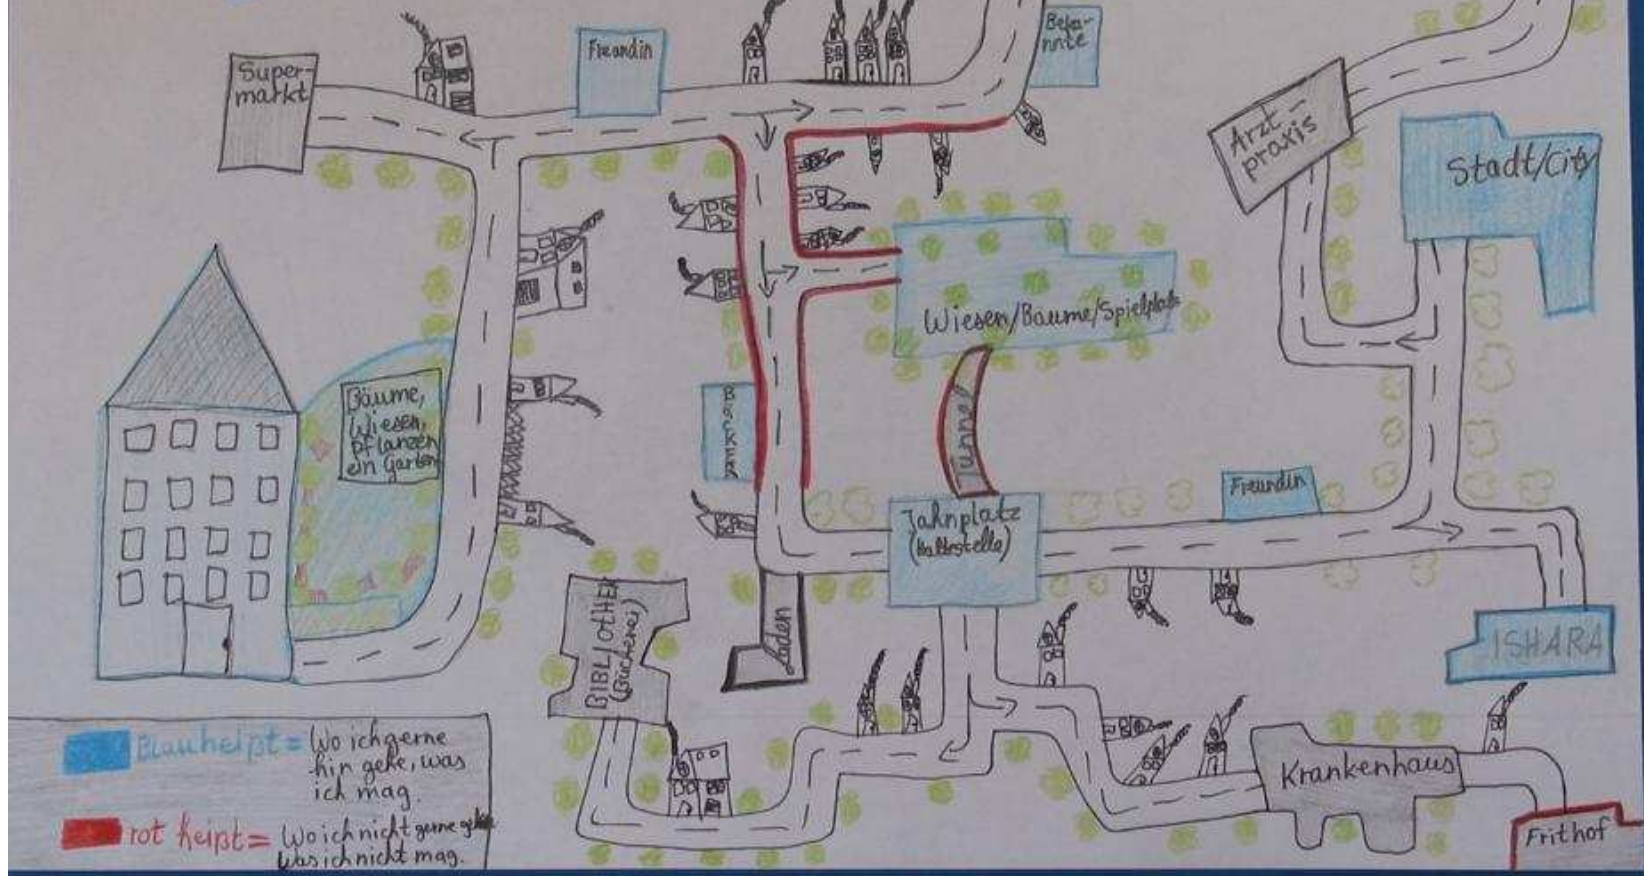 Super-
markt
Freundin
Beka-
nnte
Arzt
praxis
Stadt/City
Wiesen/Bäume/Spielplatz
Bäume,
Wiesen,
Pflanzen
ein Garten
BäckER
Tunnel
Freundin
Jahnplatz
(Haltestelle)
BIBLIOTHEK
(Bücherei)
Laden
ISHARA
Krankenhaus
Frithof
Blau heißt = Wo ich gerne
hin gehe, was
ich mag.
rot heißt = Wo ich nicht gerne gehe
Was ich nicht mag.